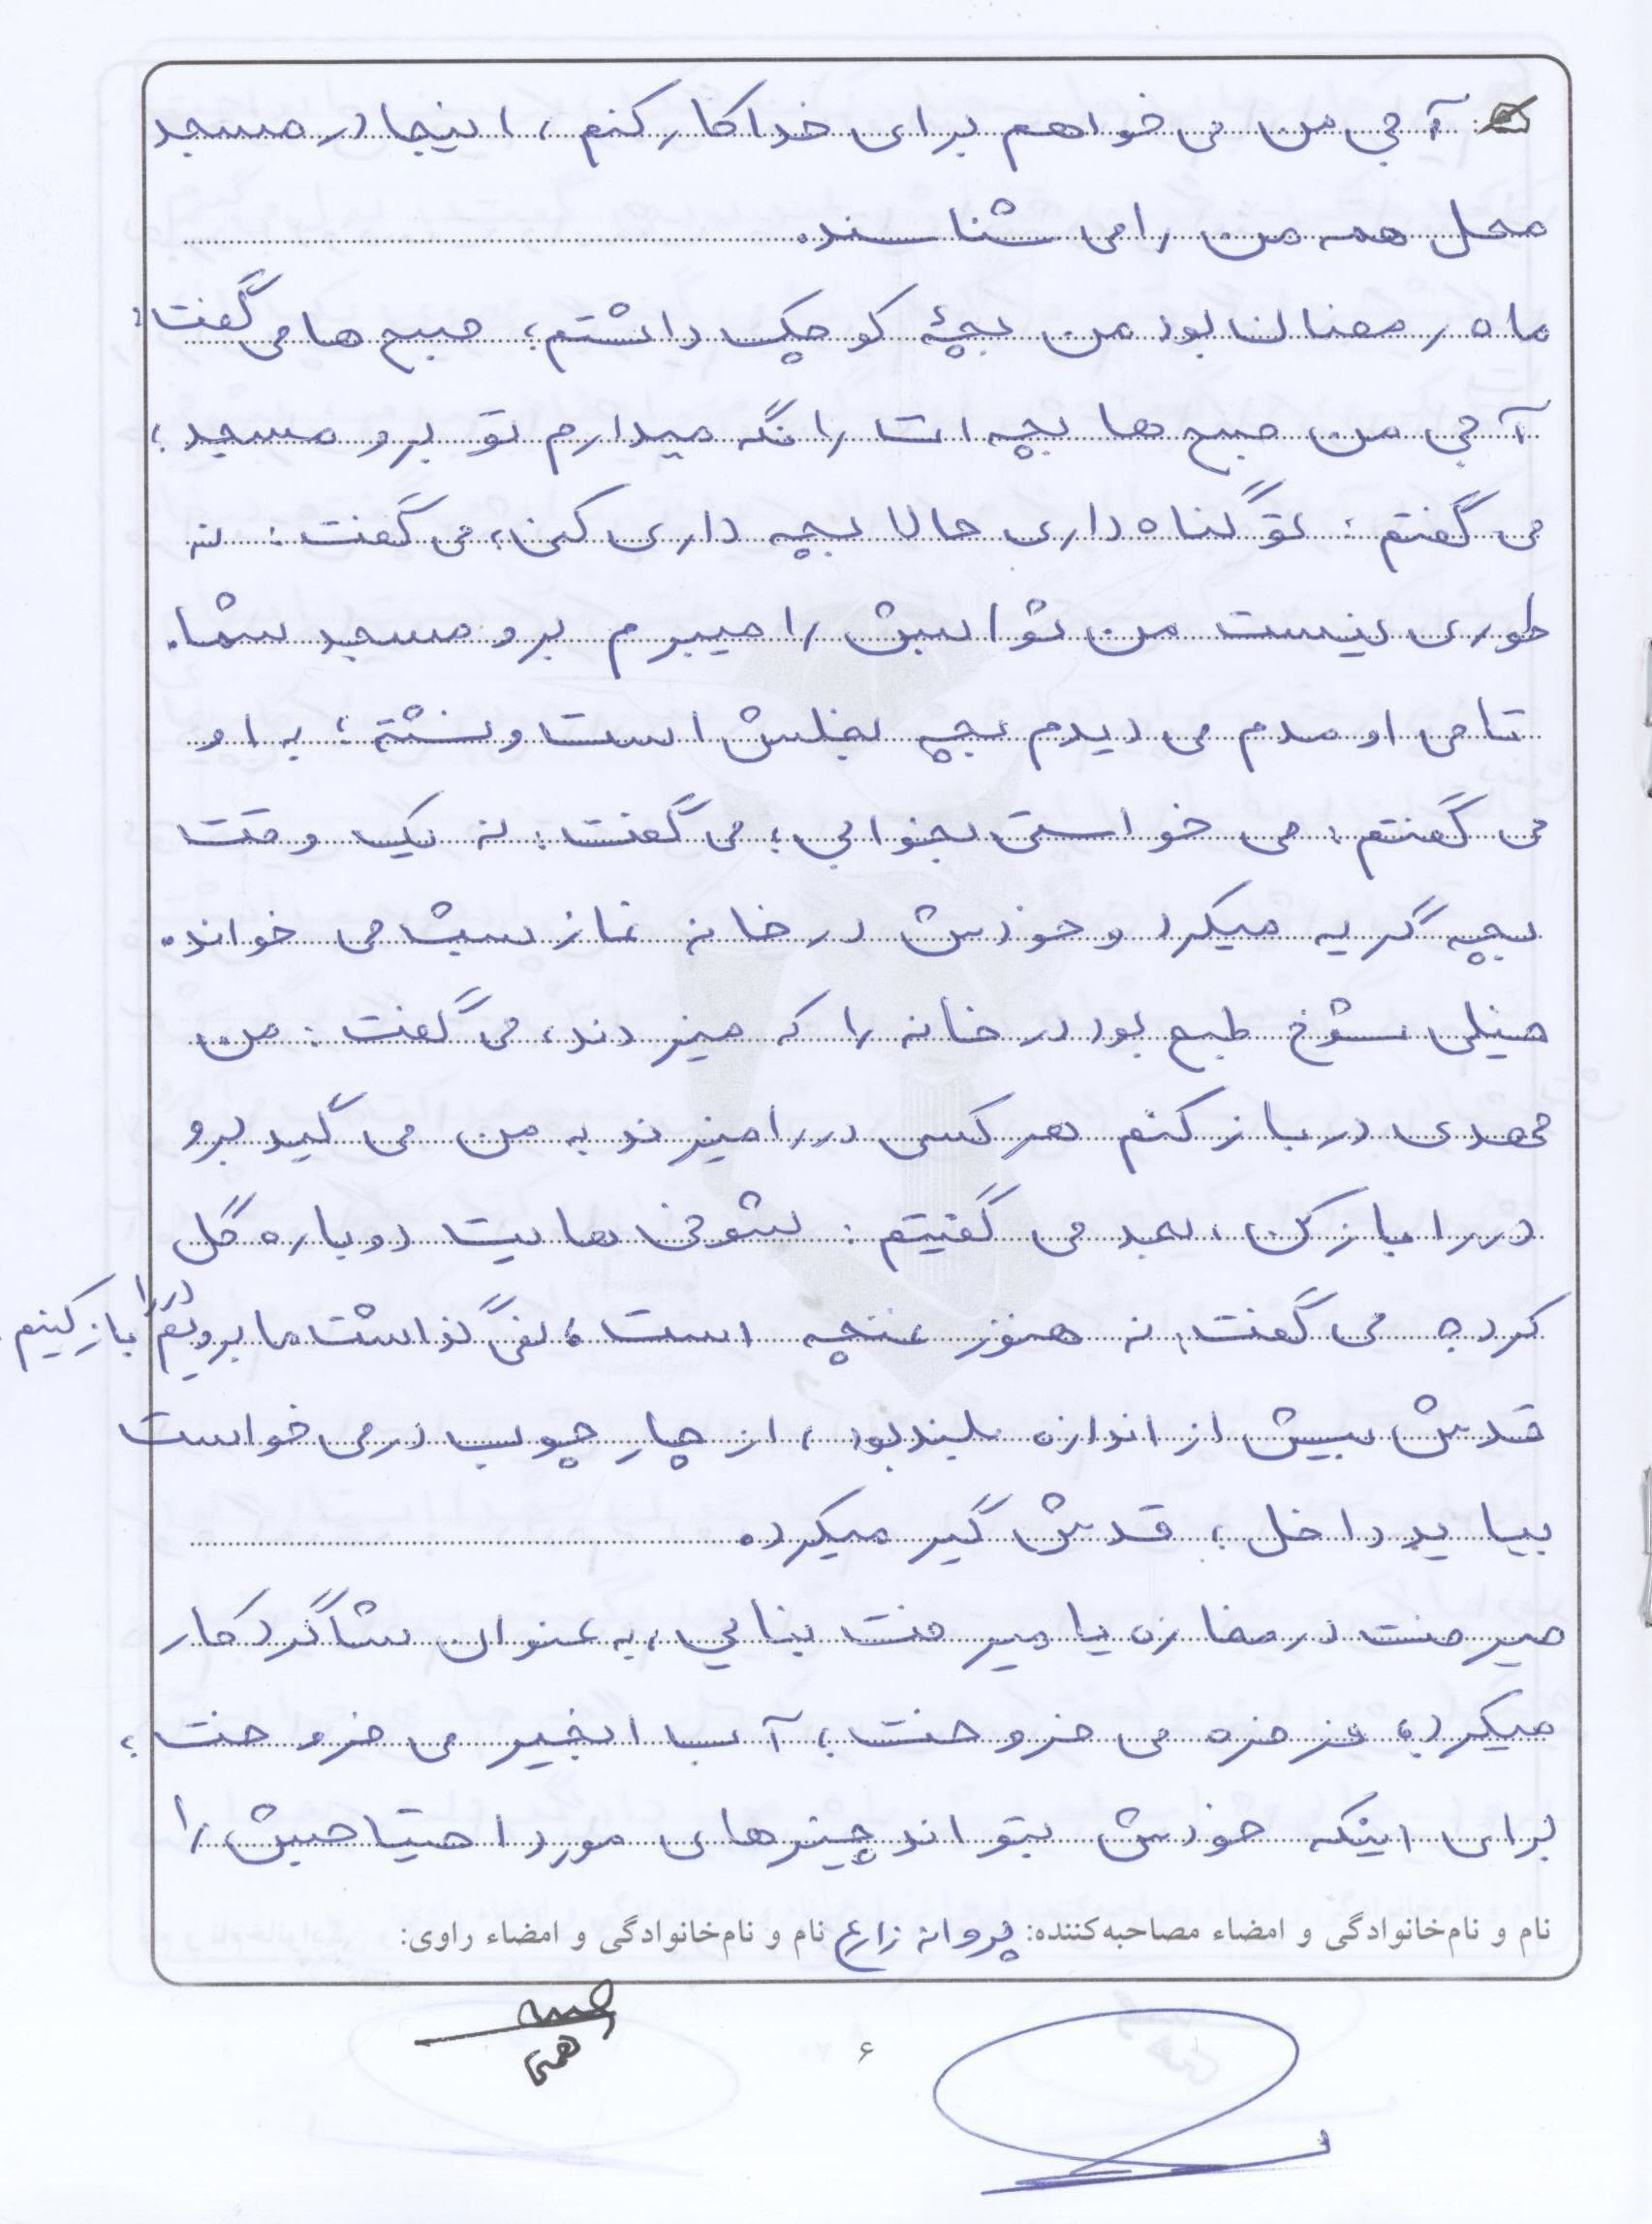 آجی من می خواهم برای خدا کار کنم، اینجا در مسجد
محل همه من را می شناسند.
ماه رمضان بود من بچۀ کوچک داشتم؛ صبح ها می گفت:
آجی من صبح ها بچه ات را نگه میدارم تو برو مسجد؛
می گفتم: تو گناه داری حالا بچه داری کنی، می گفت: نه
طوری نیست من ثوابش را میبرم برو مسجد شما.
تا می اومدم می دیدم بچه بغلش است و نشسته؛ به او
می گفتم: می خواستی بخوابی؛ می گفت: نه یک وقت
بچه گریه میکرد و خودش در خانه نماز شب می خواند.
خیلی شوخ طبع بود در خانه را که میزدند، می گفت: من
مهدی در باز کنم هر کسی در را میزند به من می گید برو
در را باز کن، بعد می گفتیم: شوخی هایت دوباره گل
کرده می گفت: نه هنوز غنچه است، نمی گذاشت ما برویم در را باز کنیم.
قدش بیش از اندازه بلند بود، از چارچوب در می خواست
بیاید داخل؛ قدش گیر میکرد.
میرفت در مغازه یا میرفت بنایی، به عنوان شاگرد کار
میکرد، فرفره می فروخت؛ آب انجیر می فروخت؛
برای اینکه خودش بتواند چیزهای مورد احتیاجش را
نام و نام‌خانوادگی و امضاء مصاحبه‌کننده: پروانه زارع نام و نام‌خانوادگی و امضاء راوی:
۶